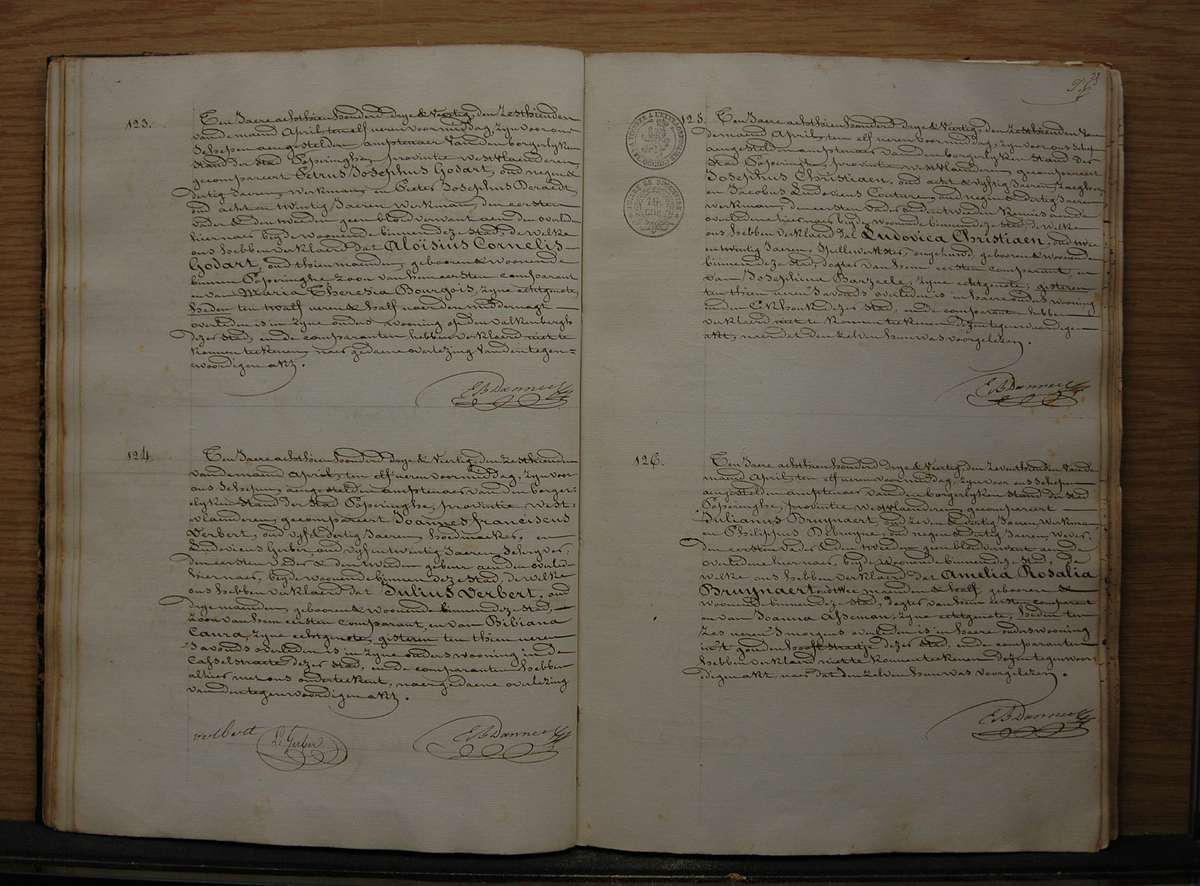 123.
Ten Jaere achthien honderd drye & Veertig, den Zesthienden
van de maand April, ten elf uren voormiddag, zyn voor ons
Schepen aengestelden amptenaer van den borgerlyken
Stand der Stad Poperinghe, provintie westvlaenderen,
gecompareert Petrus Josephus Godart, oud negen &
dertig Jaeren, werkman, en Pieter Josephus Deraedt,
oud acht en twintig Jaeren werkman, den eersten
vader & den tweeden geen bloedverwant aen den overle-
hier naer, beyde woonende binnen deze Stad, de welke
ons hebben verklaerd dat Aloïsius Cornelis
Godart, oud thien maenden, geboren & woonende
binnen Poperinghe, zoon van hun eersten comparant
en van Maria Theresia Bourgois, zyne echtgenote,
heden ten twalf uren & half naer den middernagt
overleden is in zyne ouders wooning op den valkenbergh
dezer Stad, en de comparanten hebben verklaerd niet te
konnen teekenen, naer gedaene overlezing van den tegen-
woordigen akt.
124.
Ten Jaere achthien honderd drye & Veertig, den Zesthienden
van de maand April, ten elf uren voormiddag, zyn voor
ons Schepen, aengestelden amptenaer van den borger-
lyken Stand der Stad Poperinghe, provintie west-
vlaenderen, gecompareert Joannes Franciscus
Verbert, oud vyf & dertig Jaeren, hoedmaeker, en
Ludovicus Gerber oud vyf en twintig Jaeren, Schryver,
den eersten vader & den tweeden gebuer aen den overle-
hier naer, beyde woonende binnen deze Stad, de welke
ons hebben verklaerd dat Julius Verbert, oud
drye maenden, geboren & woonende binnen deze Stad,
zoon van hun eersten comparant, en van Biliana
Caura, zyne echtgenote, gisteren ten thien uren
s'avonds overleden is in zyne ouders wooning in de
Casselstraete dezer Stad, en de comparanten hebben
alhier met ons onderteekent, naer gedaene overlezing
van den tegenwoordigen akt.
verbert
125.
Ten Jaere achthien honderd drye & Veertig, den Zesthienden van
de maand April, ten elf uren voormiddag, zyn voor ons Schepen
aengestelden amptenaer van den borgerlyken Stand der
Stad Poperinghe, provintie westvlaenderen, gecompareert
Josephus Christiaen, oud acht & vyftig Jaeren,
en Jacobus Ludovicus Couture, oud negen & dertig Jaeren
werkman, den eersten vader & den tweeden kennis aen de
overledene hier naer, beyde woonende binnen deze Stad, de welke
ons hebben verklaerd dat Ludovica Christiaen, oud twee
en twintig Jaeren, Spellewerkster, ongehuwd, geboren & woonende
binnen deze Stad, dogter van hun eersten comparant, en
van Josephina Barzeele, zyne echtgenote, gisteren
ten thien uren s'avonds overleden is in haere ouders wooning
in den Ekhoek dezer Stad, en de comparanten hebben
verklaerd niet te konnen teekenen dezen tegenwoordigen
akt, naer dat den zelven hun was voorgelezen.
126.
Ten Jaere achthien honderd drye & Veertig, den Zeventhienden van de
maand April, ten elf uren voormiddag, zyn voor ons Schepen
aengestelden amptenaer van den borgerlyken Stand der Stad
Poperinghe, provintie westvlaenderen, gecompareert
Julianus Bruynaert, oud zeven & dertig Jaeren, werkman
en Philippus Debruyne, oud negen & dertig Jaeren, wever,
den eersten vader & den tweeden geen bloedverwant aen de
overledene hier naer, beyde woonende binnen deze Stad, de
welke ons hebben verklaerd dat Amelia Rosalia
Bruynaert, oud twee maenden & half, geboren &
woonende binnen deze Stad, dogter van hun eersten comparant
en van Joanna Asseman, zyne echtgenote, heden ten
zes uren s'morgens overleden is in haere ouders wooning
in't gouden hooft straetje dezer Stad, en de comparanten
hebben verklaerd niet te konnen teekenen dezen tegenwoor-
digen akt, naer dat den zelven hun was voorgelezen.